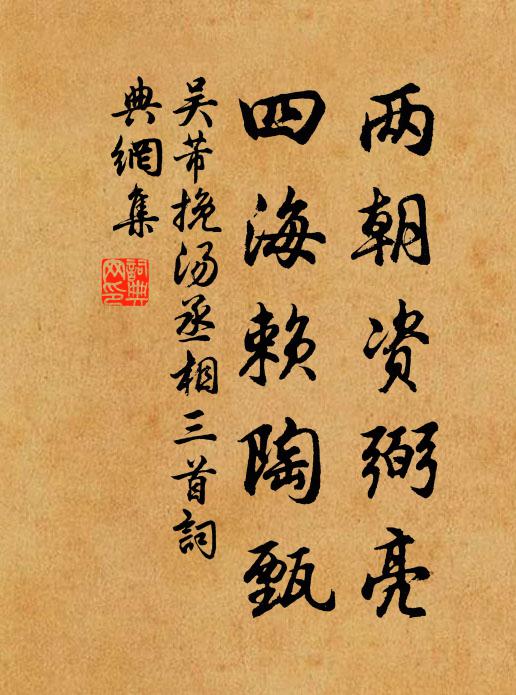 两朝资弼亮
四海赖陶甄
吴芾挽汤丞相三首词
典網集
詞典網印